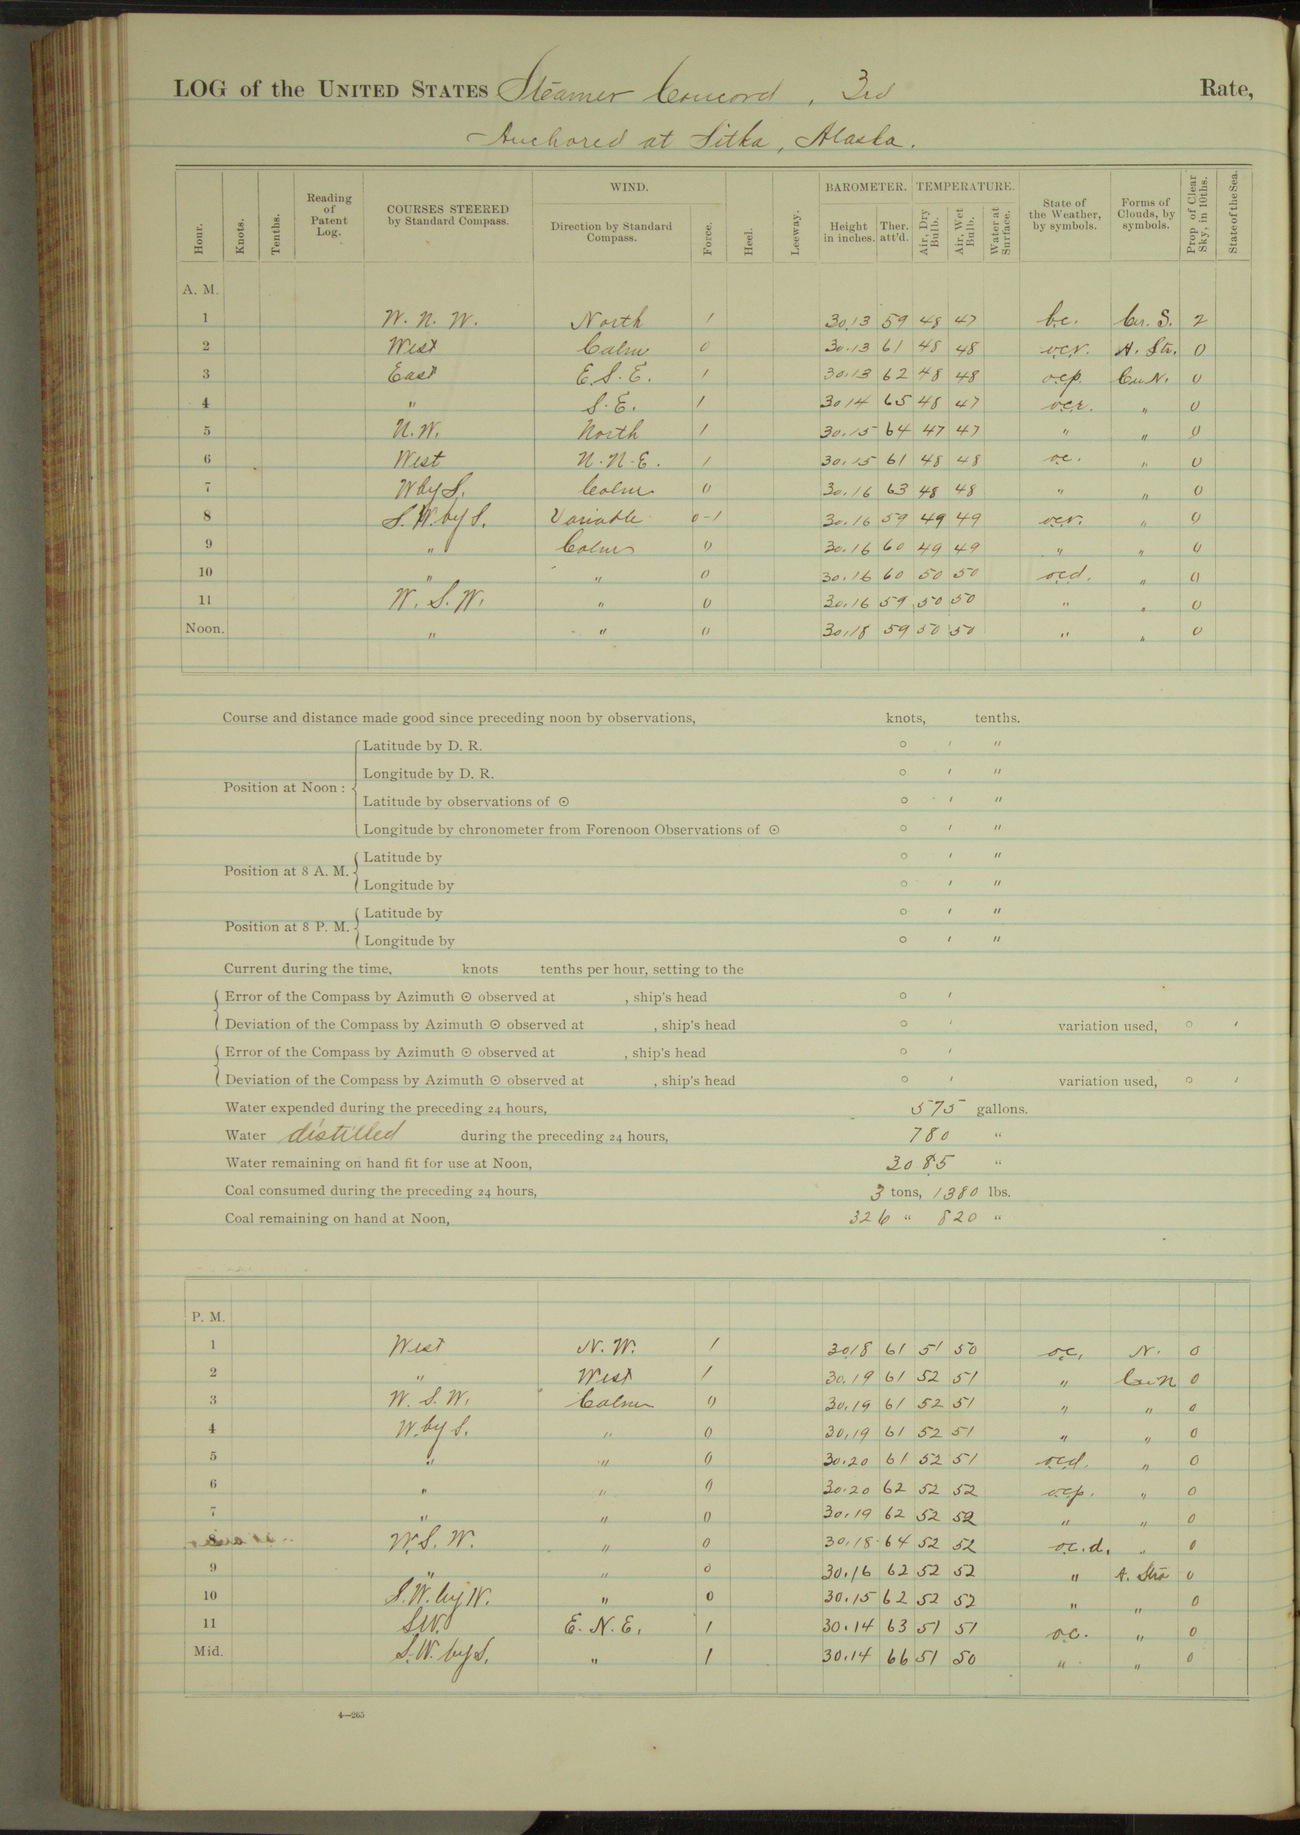 LOG of the UNITED STATES Steamer Concord, 3rd Rate,
Anchored at Sitka, Alaska.
Hour. Knots. Tenths. Reading of Patent Log. COURSES STEERED by Standard Compass. WIND. Direction by Standard Compass. Force. Heel. Leeway. BAROMETER. Height in inches. Ther. att'd. TEMPERATURE. Air, Dry Bulb. Air, Wet Bulb. Water at Surface. State of the Weather, by symbols. Forms of Clouds, by symbols. Prop of Clear Sky, in 10ths. State of the Sea.
A. M.
1 W. N. W. North 1 30.13 59 48 47 b.c. Cir. S. 2
2 West Calm 0 30.13 61 48 48 o.c.r. A. Str. 0
3 East E.S.E. 1 30.13 62 48 48 o.c.p. Cu.N. 0
4 " S.E. 1 30.14 65 48 47 o.c.r. " 0
5 N.W. North 1 30.15 64 47 47 " " 0
6 West N.N.E. 1 30.15 61 48 48 o.c. " 0
7 W by S. Calm 0 30.16 63 48 48 " " 0
8 S.W. by S. Variable 0-1 30.16 59 49 49 o.c.r. " 0
9 " Calm 0 30.16 60 49 49 " " 0
10 " " 0 30.16 60 50 50 o.c.d. " 0
11 W. S. W. " 0 30.16 59 50 50 " " 0
Noon. " " 0 30.18 59 50 50 " " 0
Course and distance made good since preceding noon by observations, knots, tenths.
Position at Noon: Latitude by D. R. ° ′ ″
Longitude by D. R. ° ′ ″
Latitude by observations of ☉ ° ′ ″
Longitude by chronometer from Forenoon Observations of ☉ ° ′ ″
Position at 8 A. M. Latitude by ° ′ ″
Longitude by ° ′ ″
Position at 8 P. M. Latitude by ° ′ ″
Longitude by ° ′ ″
Current during the time, knots tenths per hour, setting to the
Error of the Compass by Azimuth ☉ observed at , ship's head ° ′
Deviation of the Compass by Azimuth ☉ observed at , ship's head ° ′ variation used, ° ′
Error of the Compass by Azimuth ☉ observed at , ship's head ° ′
Deviation of the Compass by Azimuth ☉ observed at , ship's head ° ′ variation used, ° ′
Water expended during the preceding 24 hours, 575 gallons.
Water distilled during the preceding 24 hours, 780 "
Water remaining on hand fit for use at Noon, 3085 "
Coal consumed during the preceding 24 hours, 3 tons, 1380 lbs.
Coal remaining on hand at Noon, 326 " 820 "
P. M.
1 West N.W. 1 30.18 61 51 50 o.c. N. 0
2 " West 1 30.19 61 52 51 " Cu.N 0
3 W. S. W. Calm 0 30.19 61 52 51 " " 0
4 W. by S. " 0 30.19 61 52 51 " " 0
5 " " 0 30.20 61 52 51 o.c.d. " 0
6 " " 0 30.20 62 52 52 o.c.p. " 0
7 " " 0 30.19 62 52 52 " " 0
8 W.S.W. " 0 30.18 64 52 52 o.c.d. " 0
9 " " 0 30.16 62 52 52 " A. Str. 0
10 S.W. by W. " 0 30.15 62 52 52 " " 0
11 S.W. E. N. E. 1 30.14 63 51 51 o.c. " 0
Mid. S.W. by S. " 1 30.14 66 51 50 " " 0
4—265